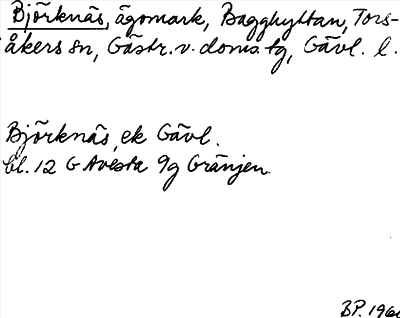 Björknäs, ägomark, Bagghyttan, Tors-
åkers sn, Gästr. v. doms. tg, Gävl. l.
Björknäs, ek Gävl.
bl. 12 G Avesta 9g Gränjen
BP. 196